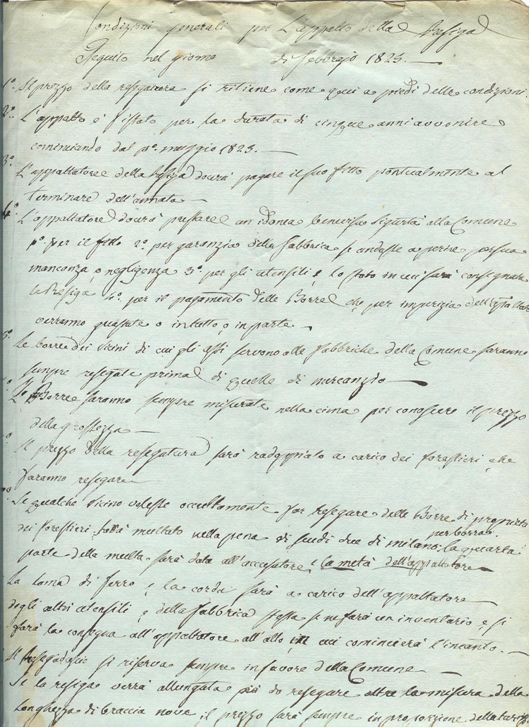 Condizioni generali per L'appalto della Resiga
Seguito nel giorno di Febbrajo 1823.
1°. Il prezzo della resegatura si ritiene come qui a piedi delle condizioni.
2°. L'appalto è fissato per la durata di cinque anni avvenire
cominciando dal p° maggio 1823.
3°. L'appaltatore della Resiga dovrà pagare il suo fitto pontualmente al
terminare dell'annata
4°. L'appaltatore dovrà prestare un idonea benevisa sigurtà alla Comune
p° per il fitto 2° per garanzia della Fabbrica se andasse a perire per sua
mancanza o negligenza 3° per gli utensili, e lo stato in cui sarà consegnata
la Resiga 4° per il pagamento delle Borre che per imperizia dell'appaltatore
verranno guastate o in tutto o in parte
5°. Le borre dei vicini di cui gli assi servono alle fabbriche della Comune saranno
sempre resegate prima di quelle di mercanzia
Le Borre saranno sempre misurate nella cima per conoscere il prezzo
della grossezza
Il prezzo della resegatura sarà radoppiato a carico dei forastieri che
faranno resegare
Se qualche vicino volesse occultamente far resegare delle Borre di proprietà
dei forestieri sarà multato nella pena di scudi due di milano per borra, la quarta
parte della multa sarà data all'accusatore e la metà dell'appaltatore
La lama di ferro, e la corda sarà a carico dell'appaltatore
degli altri utensili, e della Fabbrica stessa se ne farà un inventario e si
farà la consegna all'appaltatore all'atto in cui comincierà l'incanto.
Il si riserva sempre in favore della Comune
Se la resiga verrà allungata più da resegare oltre la misura della
longhezza di braccia nove, il prezzo sarà sempre in proporzione della